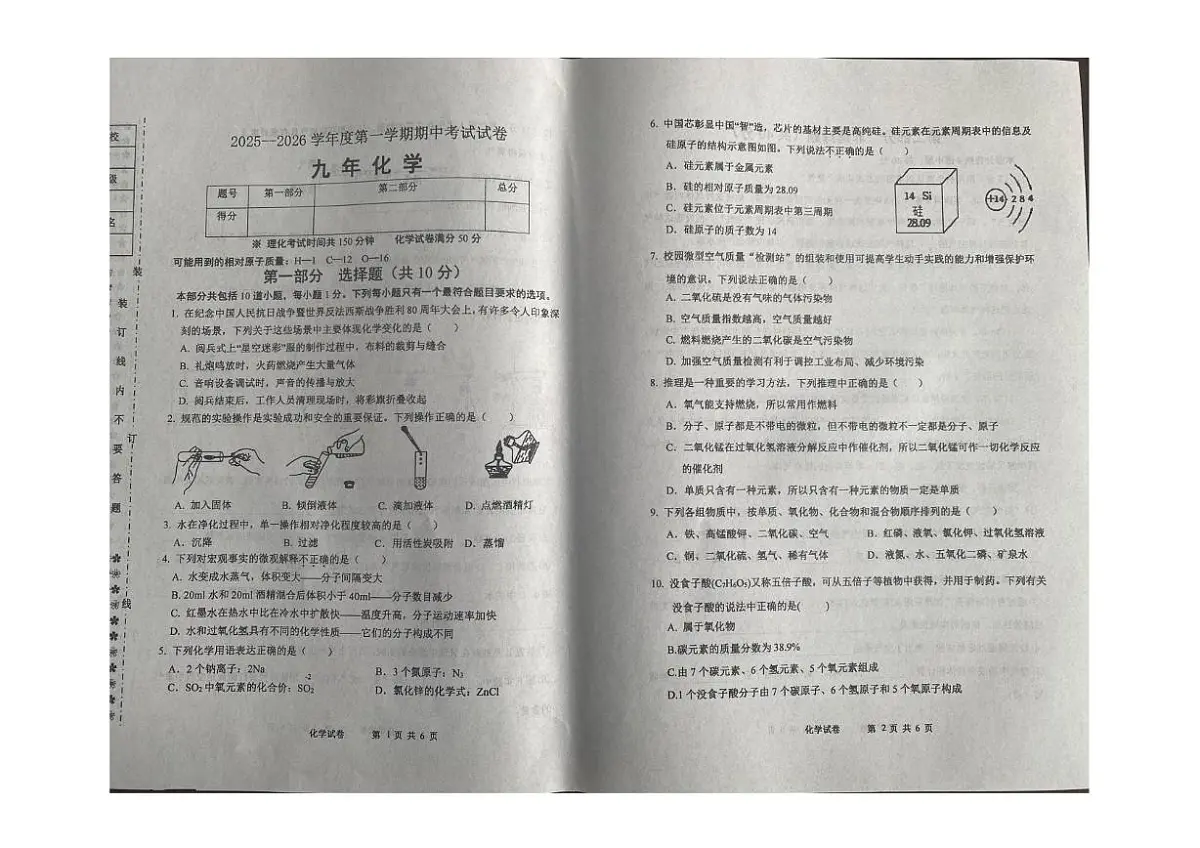 校
级
名
装
订
线
内
不
要
答
题
装
订
线
2025—2026 学年度第一学期期中考试试卷
九 年 化 学
题号 第一部分 第二部分 总分
得分
※ 理化考试时间共 150 分钟 化学试卷满分 50 分
可能用到的相对原子质量：H—1 C—12 O—16
第一部分 选择题（共 10 分）
本部分共包括 10 道小题，每小题 1 分。下列每小题只有一个最符合题目要求的选项。
1. 在纪念中国人民抗日战争暨世界反法西斯战争胜利 80 周年大会上，有许多令人印象深
刻的场景，下列关于这些场景中主要体现化学变化的是（ ）
A. 阅兵式上“星空迷彩”服的制作过程中，布料的裁剪与缝合
B. 礼炮鸣放时，火药燃烧产生大量气体
C. 音响设备调试时，声音的传播与放大
D. 阅兵结束后，工作人员清理现场时，将彩旗折叠收起
2. 规范的实验操作是实验成功和安全的重要保证。下列操作正确的是（ ）
A. 加入固体 B. 倾倒液体 C. 滴加液体 D. 点燃酒精灯
3. 水在净化过程中，单一操作相对净化程度较高的是（ ）
A. 沉降 B. 过滤 C. 用活性炭吸附 D. 蒸馏
4. 下列对宏观事实的微观解释不正确的是（ ）
A. 水变成水蒸气，体积变大——分子间隔变大
B. 20ml 水和 20ml 酒精混合后体积小于 40ml——分子数目减少
C. 红墨水在热水中比在冷水中扩散快——温度升高，分子运动速率加快
D. 水和过氧化氢具有不同的化学性质——它们的分子构成不同
5. 下列化学用语表达正确的是（ ）
A. 2 个钠离子：2Na B. 3 个氮原子：N₃
-2
C. SO₂ 中氧元素的化合价：SO₂ D. 氯化锌的化学式：ZnCl
化学试卷 第 1 页 共 6 页
6. 中国芯彰显中国“智”造，芯片的基材主要是高纯硅。硅元素在元素周期表中的信息及
硅原子的结构示意图如图。下列说法不正确的是（ ）
A. 硅元素属于金属元素
B. 硅的相对原子质量为 28.09
C. 硅元素位于元素周期表中第三周期
D. 硅原子的质子数为 14
14 Si
硅
28.09
+14 2 8 4
7. 校园微型空气质量“检测站”的组装和使用可提高学生动手实践的能力和增强保护环
境的意识。下列说法正确的是（ ）
A. 二氧化硫是没有气味的气体污染物
B. 空气质量指数越高，空气质量越好
C. 燃料燃烧产生的二氧化碳是空气污染物
D. 加强空气质量检测有利于调控工业布局、减少环境污染
8. 推理是一种重要的学习方法，下列推理中正确的是（ ）
A. 氧气能支持燃烧，所以常用作燃料
B. 分子、原子都是不带电的微粒，但不带电的微粒不一定都是分子、原子
C. 二氧化锰在过氧化氢溶液分解反应中作催化剂，所以二氧化锰可作一切化学反应
的催化剂
D. 单质只含有一种元素，所以只含有一种元素的物质一定是单质
9. 下列各组物质中，按单质、氧化物、化合物和混合物顺序排列的是（ ）
A. 铁、高锰酸钾、二氧化碳、空气 B. 红磷、液氧、氯化钾、过氧化氢溶液
C. 铜、二氧化硫、氢气、稀有气体 D. 液氮、水、五氧化二磷、矿泉水
10. 没食子酸(C₇H₆O₅)又称五倍子酸，可从五倍子等植物中获得，并用于制药。下列有关
没食子酸的说法中正确的是( )
A. 属于氧化物
B.碳元素的质量分数为 38.9%
C.由 7 个碳元素、6 个氢元素、5 个氧元素组成
D.1 个没食子酸分子由 7 个碳原子、6 个氢原子和 5 个氧原子构成
化学试卷 第 2 页 共 6 页